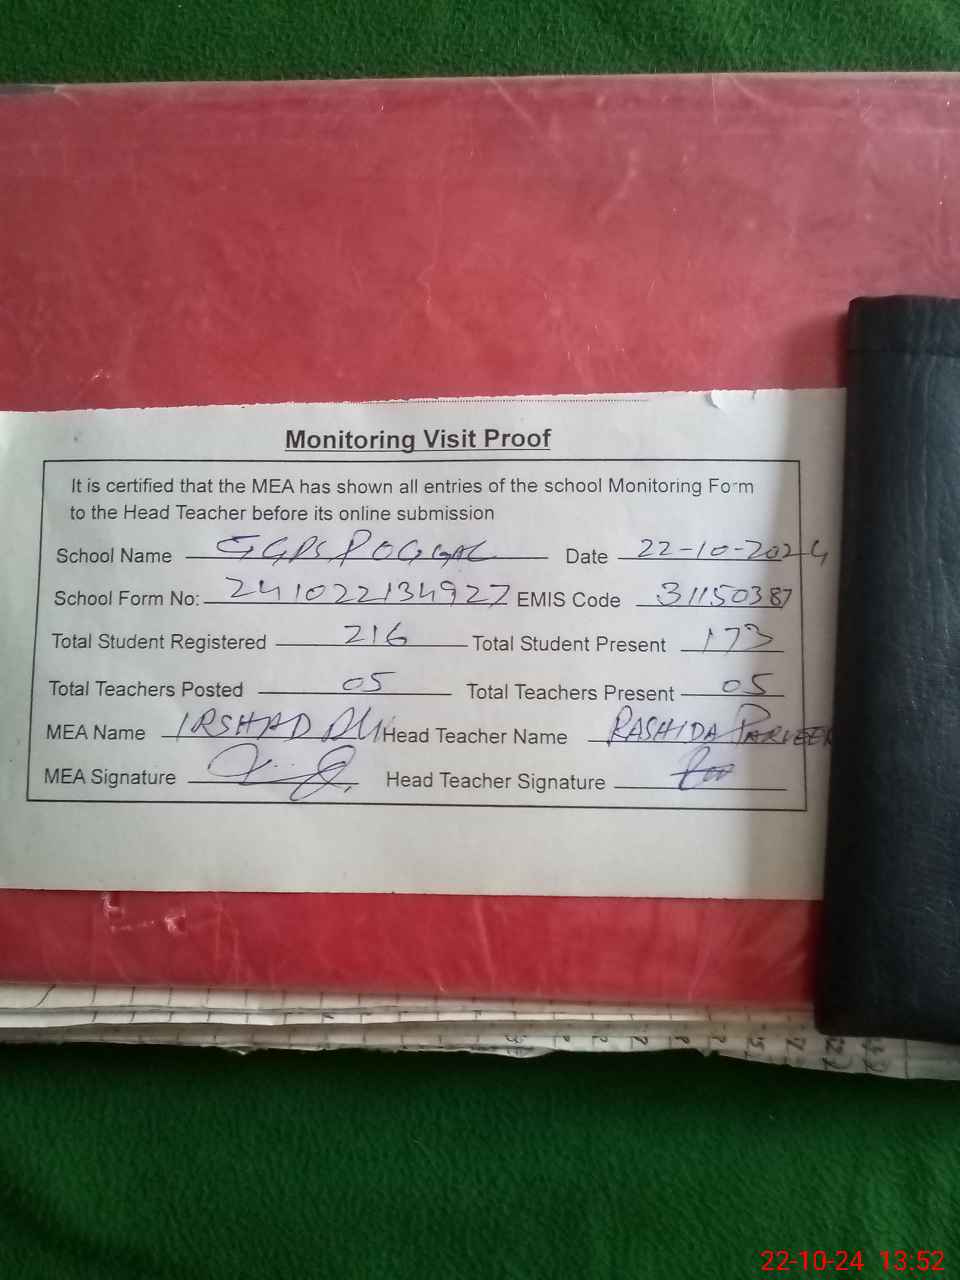 Monitoring Visit Proof
It is certified that the MEA has shown all entries of the school Monitoring Form
to the Head Teacher before its online submission
School Name GGPS Date 22-10-2024
School Form No: 241022134927 EMIS Code 31150387
Total Student Registered 216 Total Student Present 173
Total Teachers Posted 05 Total Teachers Present 05
MEA Name IRSHAD Head Teacher Name RASHIDA PARVEEN
MEA Signature Head Teacher Signature
22-10-24 13:52